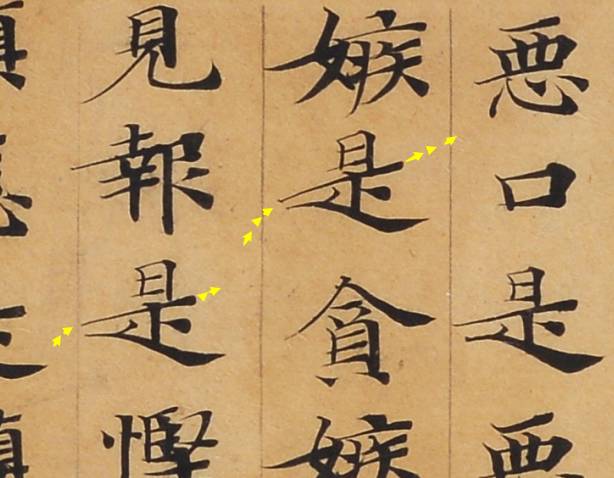 悪口是悪
嫉是貪嫉
見報是慳